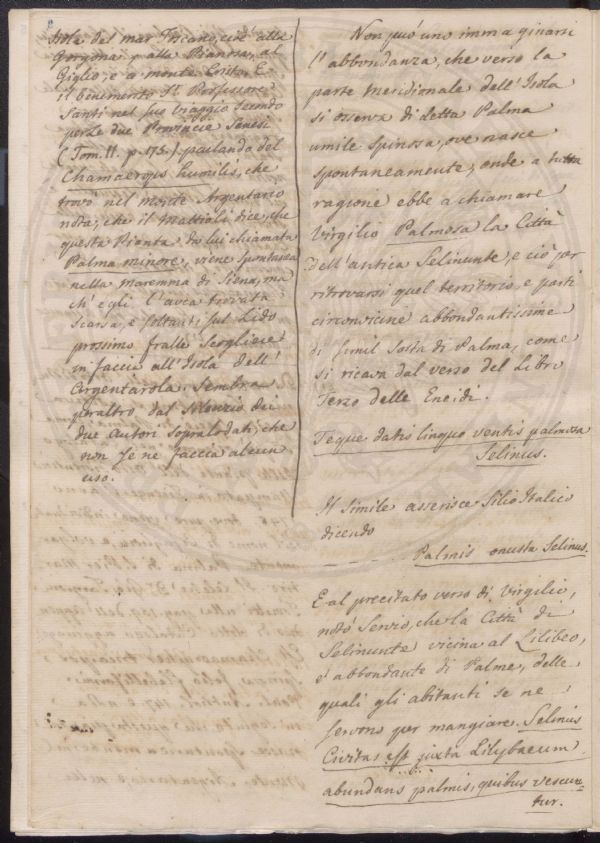 Isola del mar Toscano, cioè alla
Gorgona, alla Pianosa, al
Giglio, e a monte Cristo. E
il benemerito Sr. Professore
Santi nel suo Viaggio secondo
per le due Provincie Senesi
(Tom. II. p. 175.) parlando del
Chamaerops humilis, che
trovò nel monte Argentario
nota, che il Mattioli dice, che
questa Pianta da lui chiamata
Palma minore, viene spontanea
nella maremma di Siena, ma
ch'egli l'avea trovata
scarsa, e soltanto sul Lido
prossimo fralle Scogliere
in faccia all'Isola dell'
Argentarola. Sembra
peraltro dal silenzio dei
due autori sopralodati, che
non se ne faccia alcun
uso.
Non può uno immaginarsi
l'abbondanza, che verso la
parte meridionale dell'Isola
si osserva di detta Palma
umile spinosa, ove nasce
spontaneamente, onde a tutta
ragione ebbe a chiamare
Virgilio Palmosa la Città
dell'antica Selinunte, e ciò per
ritrovarsi quel territorio, e parti
circonvicine abbondantissime
di simil sorta di Palma, come
si ricava dal verso del Libro
Terzo delle Eneidi.
Teque datis linquo ventis palmosa
Selinus.
Il simile asserisce Silio Italico
dicendo
Palmis onusta Selinus.
E al precitato verso di Virgilio,
notò Servio, che la Città di
Selinunte vicina al Lilibeo,
è abbondante di Palme, delle
quali gli abitanti se ne
servono per mangiare. Selinus
Civitas est juxta Lilybaeum
abundans palmis, quibus vescun-
tur.